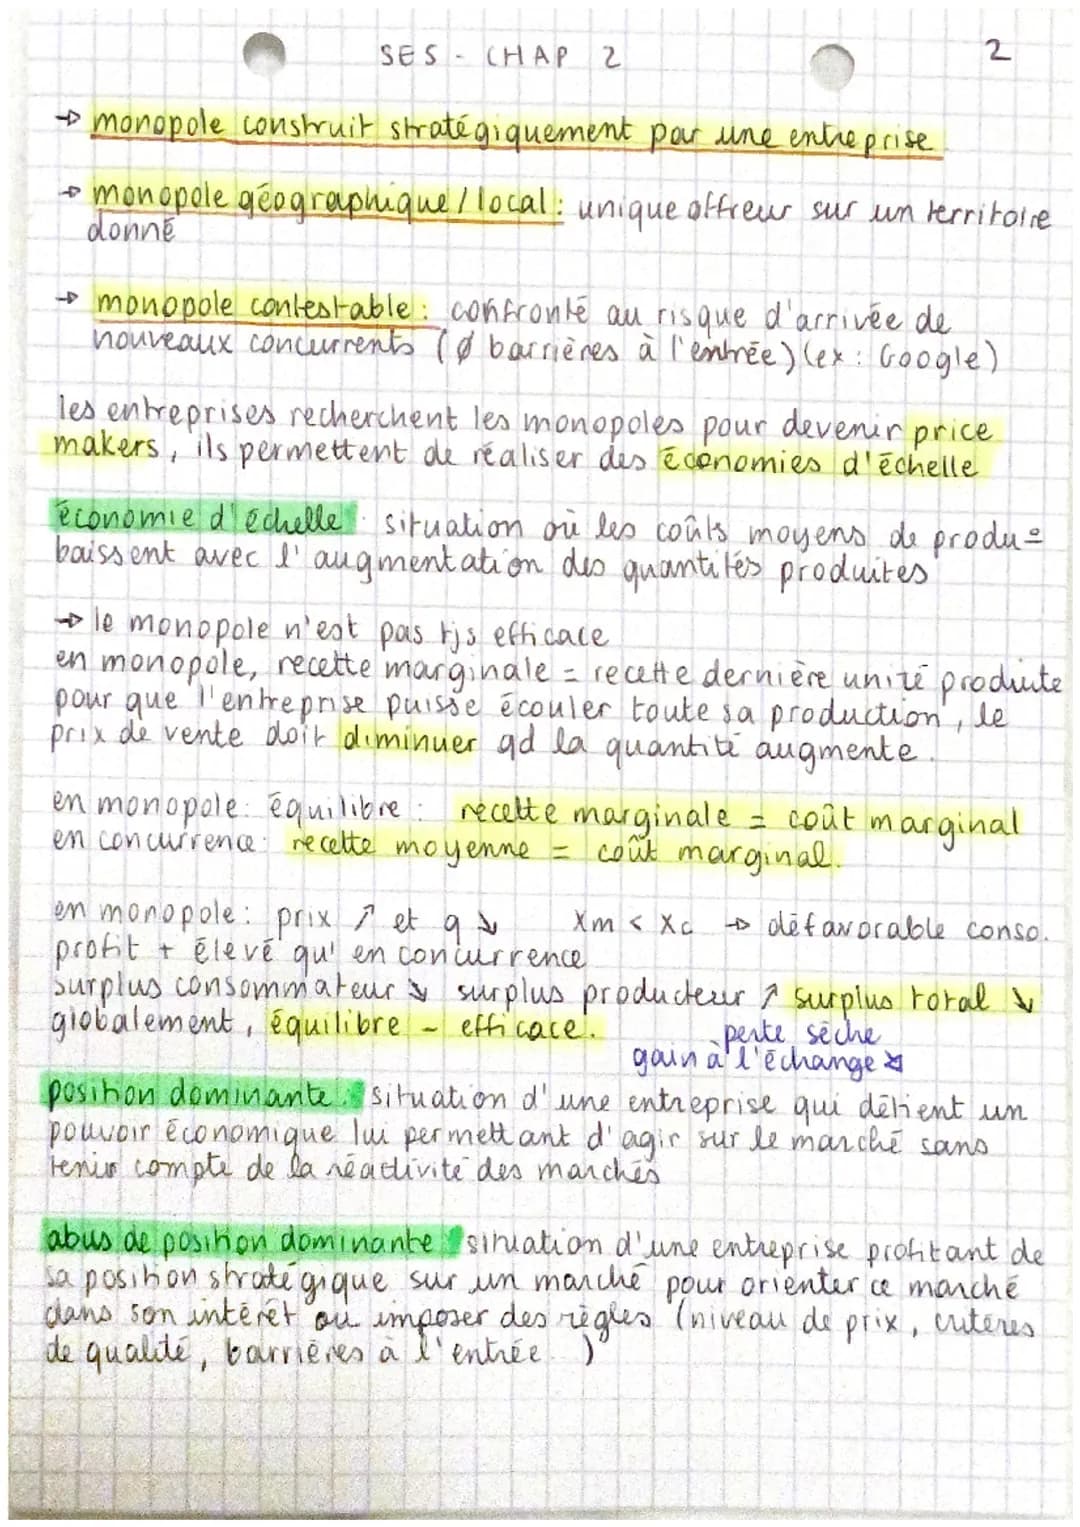 SES - CHAP 2
2
→ monopole construit stratégiquement par une entreprise
→ monopole géographique / local : unique offreur sur un territoire
donné
→ monopole contestable : confronté au risque d'arrivée de
nouveaux concurrents (Ø barrières à l'entrée) (ex : Google)
les entreprises recherchent les monopoles pour devenir price
makers, ils permettent de réaliser des économies d'échelle
économie d'échelle : situation où les coûts moyens de produ°
baissent avec l'augmentation des quantités produites
→ le monopole n'est pas tjs efficace
en monopole, recette marginale = recette dernière unité produite
pour que l'entreprise puisse écouler toute sa production, le
prix de vente doit diminuer qd la quantité augmente.
en monopole : équilibre : recette marginale = coût marginal
en concurrence : recette moyenne = coût marginal.
en monopole : prix ↗ et q ↘ Xm < Xc → défavorable conso.
profit + élevé qu'en concurrence
surplus consommateur ↘ surplus producteur ↗ surplus total ↘
globalement, équilibre - efficace.
perte sèche
gain à l'échange ↘
position dominante : situation d'une entreprise qui détient un
pouvoir économique lui permettant d'agir sur le marché sans
tenir compte de la réactivité des marchés
abus de position dominante : situation d'une entreprise profitant de
sa position stratégique sur un marché pour orienter ce marché
dans son intérêt ou imposer des règles (niveau de prix, critères
de qualité, barrières à l'entrée..)